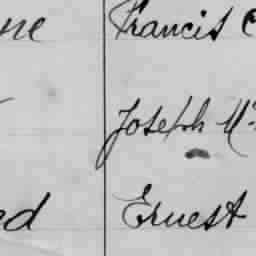 ne Francis C
Joseph Mc
ed Ernest